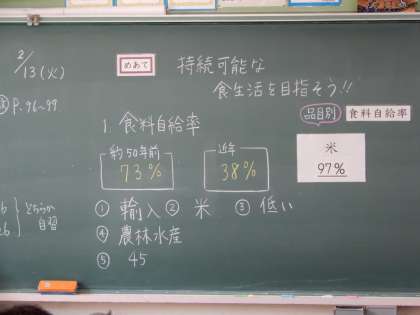 2/13(火)
P.96~99
めあて 持続可能な
食生活を目指そう!!
品目別 食料自給率
1. 食料自給率
約50年前 73%
近年 38%
米
97%
① 輸入 ② 米 ③ 低い
④ 農林水産
⑤ 45
どちらか
自習